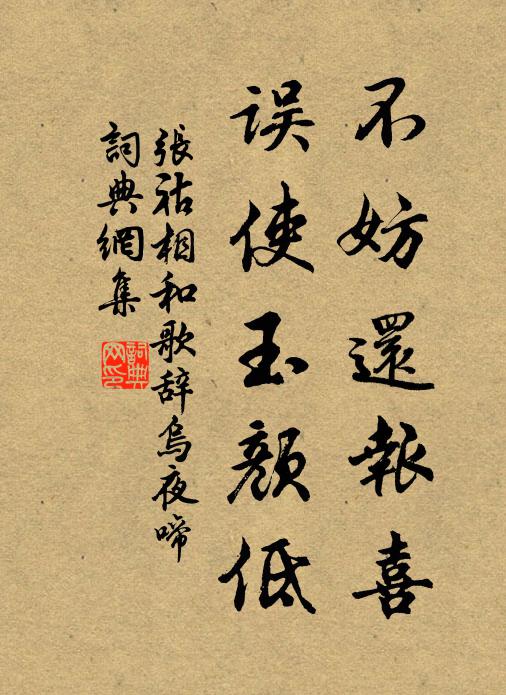 不妨還報喜
误使玉顏低
張祜相和歌辞烏夜啼
詞典網集
詞典网印